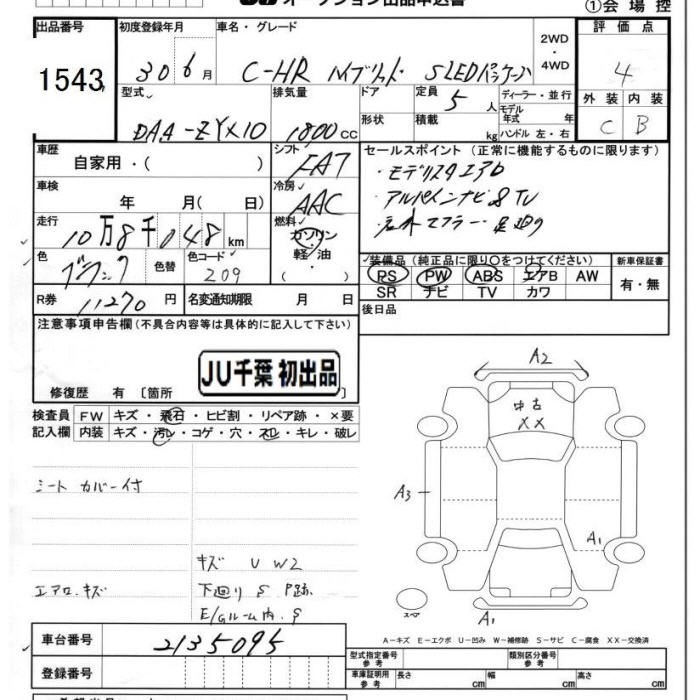 オークション出品申込書
①会場控
出品番号
1543
初度登録年月
30 6月
車名・グレード
C-HR ハイブリッド S LEDパッケージ
2WD・4WD
評価点
4
外装 内装
C B
型式
DAA-ZYX10
排気量
1800cc
ドア
形状
定員 5人
積載 kg
ディーラー・並行
モデル年式 年
ハンドル 左・右
車歴
自家用・( )
シフト
FAT
車検
年 月( 日)
冷房
AAC
走行
10万8千048km
燃料
ガソリン・軽油・( )
色
ブラック
色替
色コード
209
R券 11270円
名変通知期限 月 日
セールスポイント(正常に機能するものに限ります)
・モデリスタエアロ
・アルパインナビ&TV
・社外マフラー・足廻り
装備品(純正品に限り〇をつけてください)
PS PW ABS エアB AW
SR ナビ TV カワ
新車保証書
有・無
後日品
注意事項申告欄(不具合内容等は具体的に記入して下さい)
JU千葉 初出品
修復歴 有〔箇所
検査員記入欄
FW キズ・飛石・ヒビ割・リペア跡・×要
内装 キズ・汚レ・コゲ・穴・スレ・キレ・破レ
シートカバー付
キズ U W2
エアロ キズ
下廻り S P跡
E/Gルーム内 S
A2
中古
XX
A3
A1
A1
スペア
A-キズ E-エクボ U-凹み W-補修跡 S-サビ C-腐食 XX-交換済
車台番号
2135095
登録番号
型式指定番号 参考
類別区分番号 参考
車庫証明用 参考
長さ cm 幅 cm 高さ cm